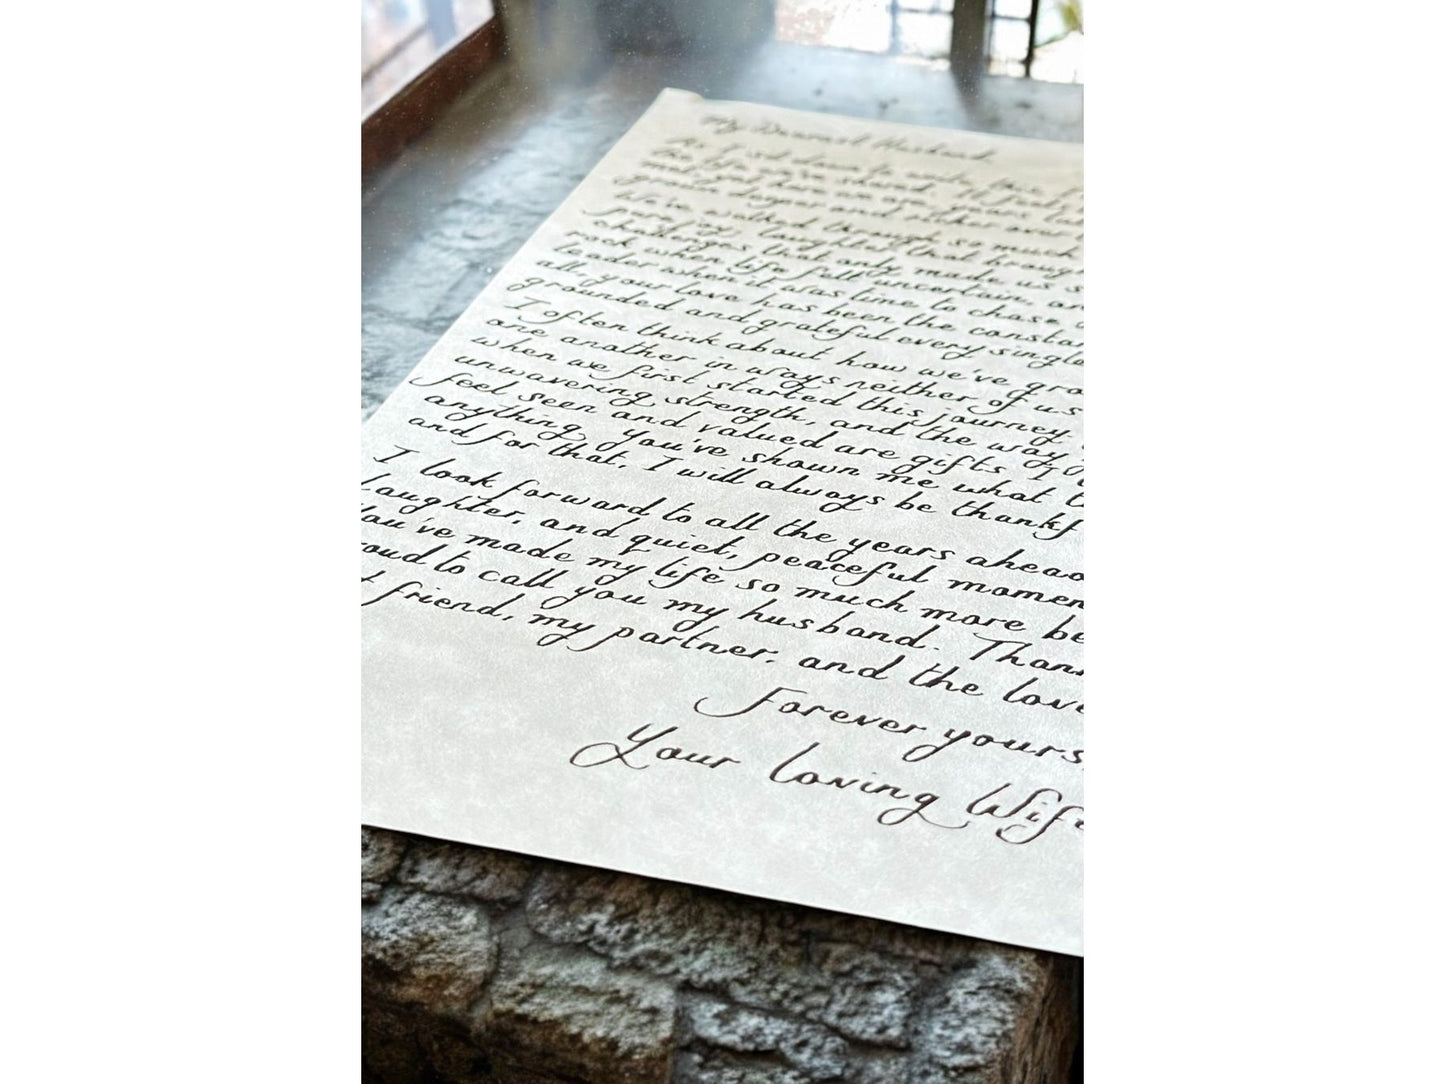 My Dearest Husband
As I sit down to write this
the life we've shared. It feels
met, yet here we are, years
grown deeper and richer over
We've walked through so much
pure joy, laughter that brough
challenges that only made us s
rock when life felt uncertain, a
leader when it was time to chase
all, your love has been the consta
grounded and grateful every single
I often think about how we've gro
one another in ways neither of us
when we first started this journey
unwavering strength, and the way
feel seen and valued are gifts I
anything, you've shown me what t
and for that, I will always be thankf
I look forward to all the years ahead
laughter, and quiet, peaceful momen
You've made my life so much more be
roud to call you my husband. Than
t friend, my partner, and the love
Forever yours,
Your loving Wife